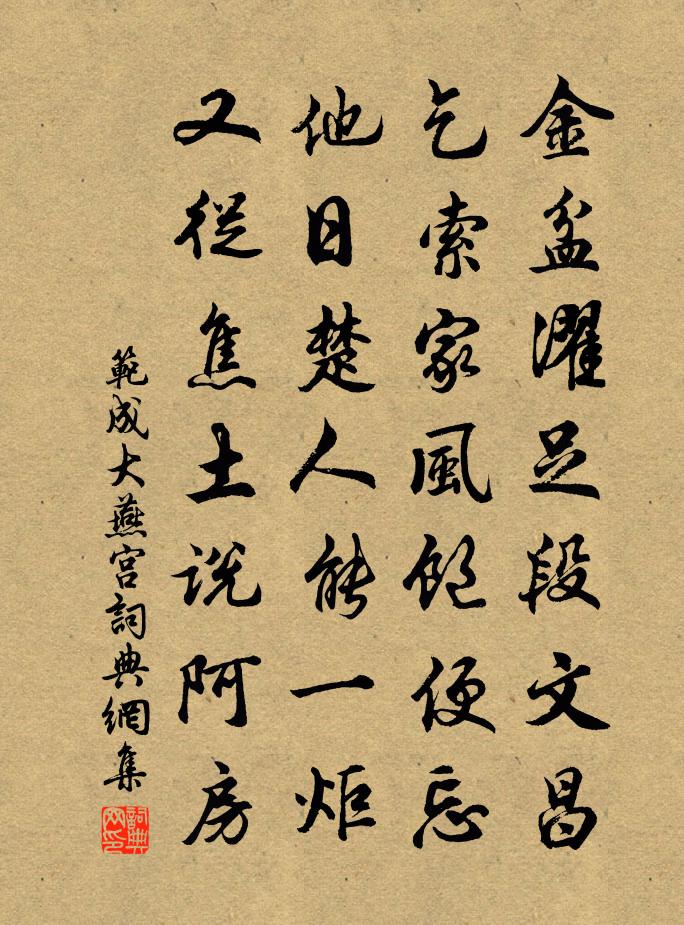 金盆濯足段文昌
乞索家風飽便忘
他日楚人能一炬
又從焦土說阿房
範成大燕宮詞典網集
詞典网印